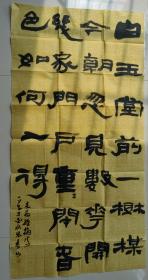 白玉堂前一樹楳
今朝忽見數花開
幾家門戶重〻閉春
色如何入得